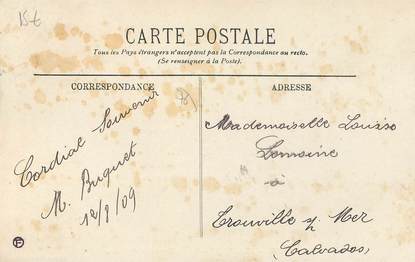 15€
CARTE POSTALE
Tous les Pays étrangers n'acceptent pas la Correspondance au recto.
(Se renseigner à la Poste).
CORRESPONDANCE
ADRESSE
Cordial Souvenir
M. Buquet
12/9/09
Mademoiselle Louise
Lemoine
à
Trouville s/ Mer
(Calvados)